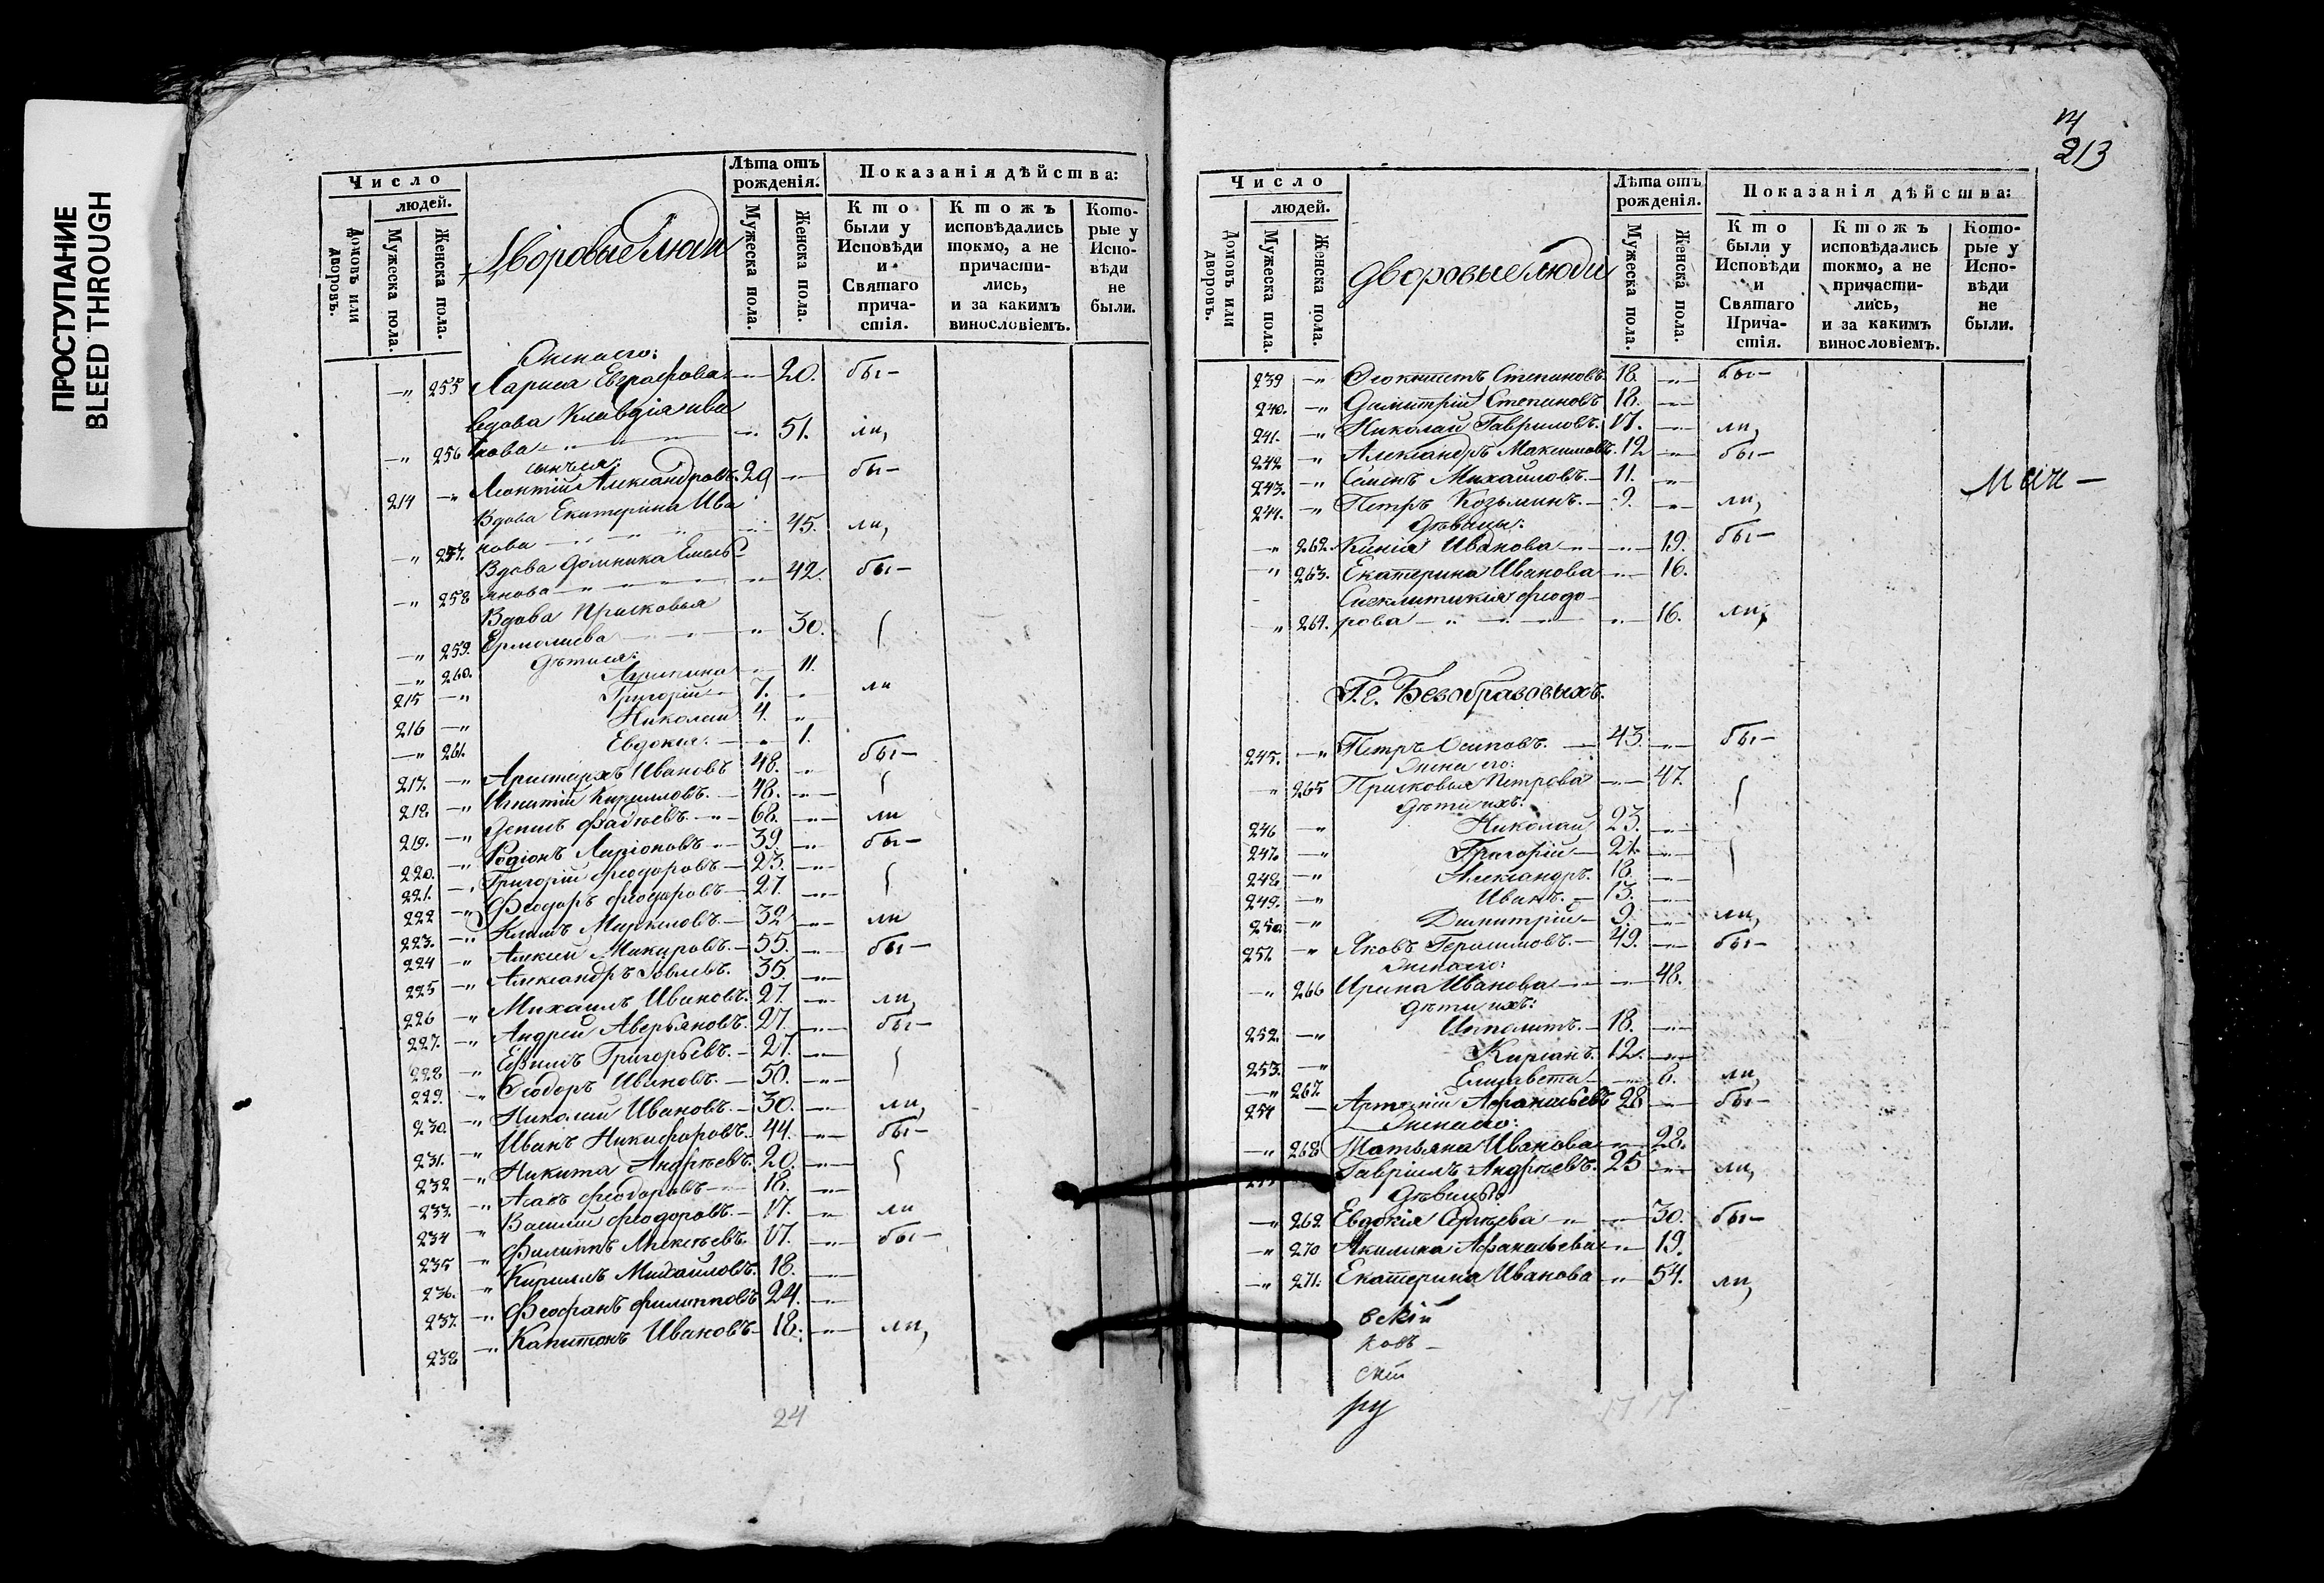 ПРОСТУПАНИЕ
BLEED THROUGH
Число
людей.
Домовъ или дворовъ.
Мужеска пола.
Женска пола.
Дворовые Люди
Лѣта отъ рожденія.
Мужеска пола.
Женска пола.
Показанія дѣйства:
Кто были у Исповѣди и Святаго причастія.
Ктожъ исповѣдались токмо, а не причастились, и за какимъ винословіемъ.
Которые у Исповѣди не были.
Жена его:
—„ 255 Лариса Евграфова — 20. бы—
Вдова Клавдія Ива
—„ 256 нова — 51. ли,
сынъ ея:
214 —„ Леонтій Александровъ. 29 — бы—
Вдова Екатерина Ива
—„ 257. нова — 45. ли,
Вдова Домника Емель
—„ 258 янова — 42. бы—
Вдова Прасковья
—„ 259. Ермолаева — 30.
дѣти ея:
—„ 260. 11.
215 —„ Григорій — 7. ли
216 —„ Николай 4.
—„ 261. Евдокія. — 1.
217. —„ Аристархъ Ивановъ 48. бы—
218 —„ Игнатій Кирилловъ. — 48.
219. —„ Денисъ Фадѣевъ. — 68. ли
220. —„ Родіонъ Ларіоновъ — 39. бы—
221. —„ Григорій Феодоровъ — 23.
222 —„ Феодоръ Феодоровъ — 27.
223. —„ Климъ — 32 ли
224 —„ Алексѣй — 55. бы—
225 —„ Александръ 35.
226 —„ Михаилъ Ивановъ. 27. ли,
227. —„ Андрей Аверьяновъ. 27. бы—
228 —„ Ефимъ Григорьевъ. — 27.
229. —„ Феодоръ Ивановъ. — 50.
230. —„ Николай Ивановъ. — 30. ли,
231. —„ Иванъ Никифоровъ. 44. бы—
232 —„ Никита Андреевъ. 20.
233. —„ Феодоровъ — 18.
234 —„ Василій Феодоровъ. — 17. ли
235 —„ Филиппъ Алексѣевъ. 17. бы—
236. —„ Кириллъ Михайловъ. 18.
237. —„ Феофанъ Филипповъ 24.
238 —„ Капитонъ Ивановъ — 18. ли,
24
213
Число
людей.
Домовъ или дворовъ.
Мужеска пола.
Женска пола.
дворовые люди
Лѣта отъ рожденія.
Мужеска пола.
Женска пола.
Показанія дѣйства:
Кто были у Исповѣди и Святаго Причастія.
Ктожъ исповѣдались токмо, а не причастились, и за какимъ винословіемъ.
Которые у Исповѣди не были.
239 —„ Феоктистъ Степановъ. 18. бы—
240. —„ Димитрій Степановъ 18.
241. —„ Николай Гавриловъ. 17. ли,
242 —„ Александръ Максимовъ. 12 бы—
243. —„ Семенъ Михайловъ. — 11.
244. —„ Петръ Козьминъ. — 9. ли,
дѣвицы:
—„ 262. Ксенія Иванова — 19. бы—
—„ 263. Екатерина Иванова — 16.
Сигклитикія Феодо
—„ 264. рова — 16. ли,
Г.г. Безобразовыхъ.
245. —„ Петръ Осиповъ. — 43. бы—
Жена его:
—„ 265 Прасковья Петрова — 47.
дѣти ихъ:
246 —„ Николай 23.
247. —„ Григорій — 21.
248 —„ Александръ. 18.
249. —„ Иванъ. — 13.
250. —„ Димитрій — 9. ли,
251. —„ Яковъ Герасимовъ. — 49. бы—
Жена его:
—„ 266 Ирина Иванова — 48.
дѣти ихъ:
252. —„ Ипполитъ. — 18.
253. —„ 12.
—„ 267. Елизавета — 6. ли,
254 — Артемій Афанасьевъ 28 — бы—
Жена его:
—„ 268 Татьяна Иванова — 28.
Гавріилъ Андреевъ. 25 ли,
Дѣвицы:
—„ 269. Евдокія — 30. бы—
—„ 270 Акилина Афанасьева — 19.
—„ 271. Екатерина Иванова — 54. ли,
вскій
ковъ —
скій
ру
17 17